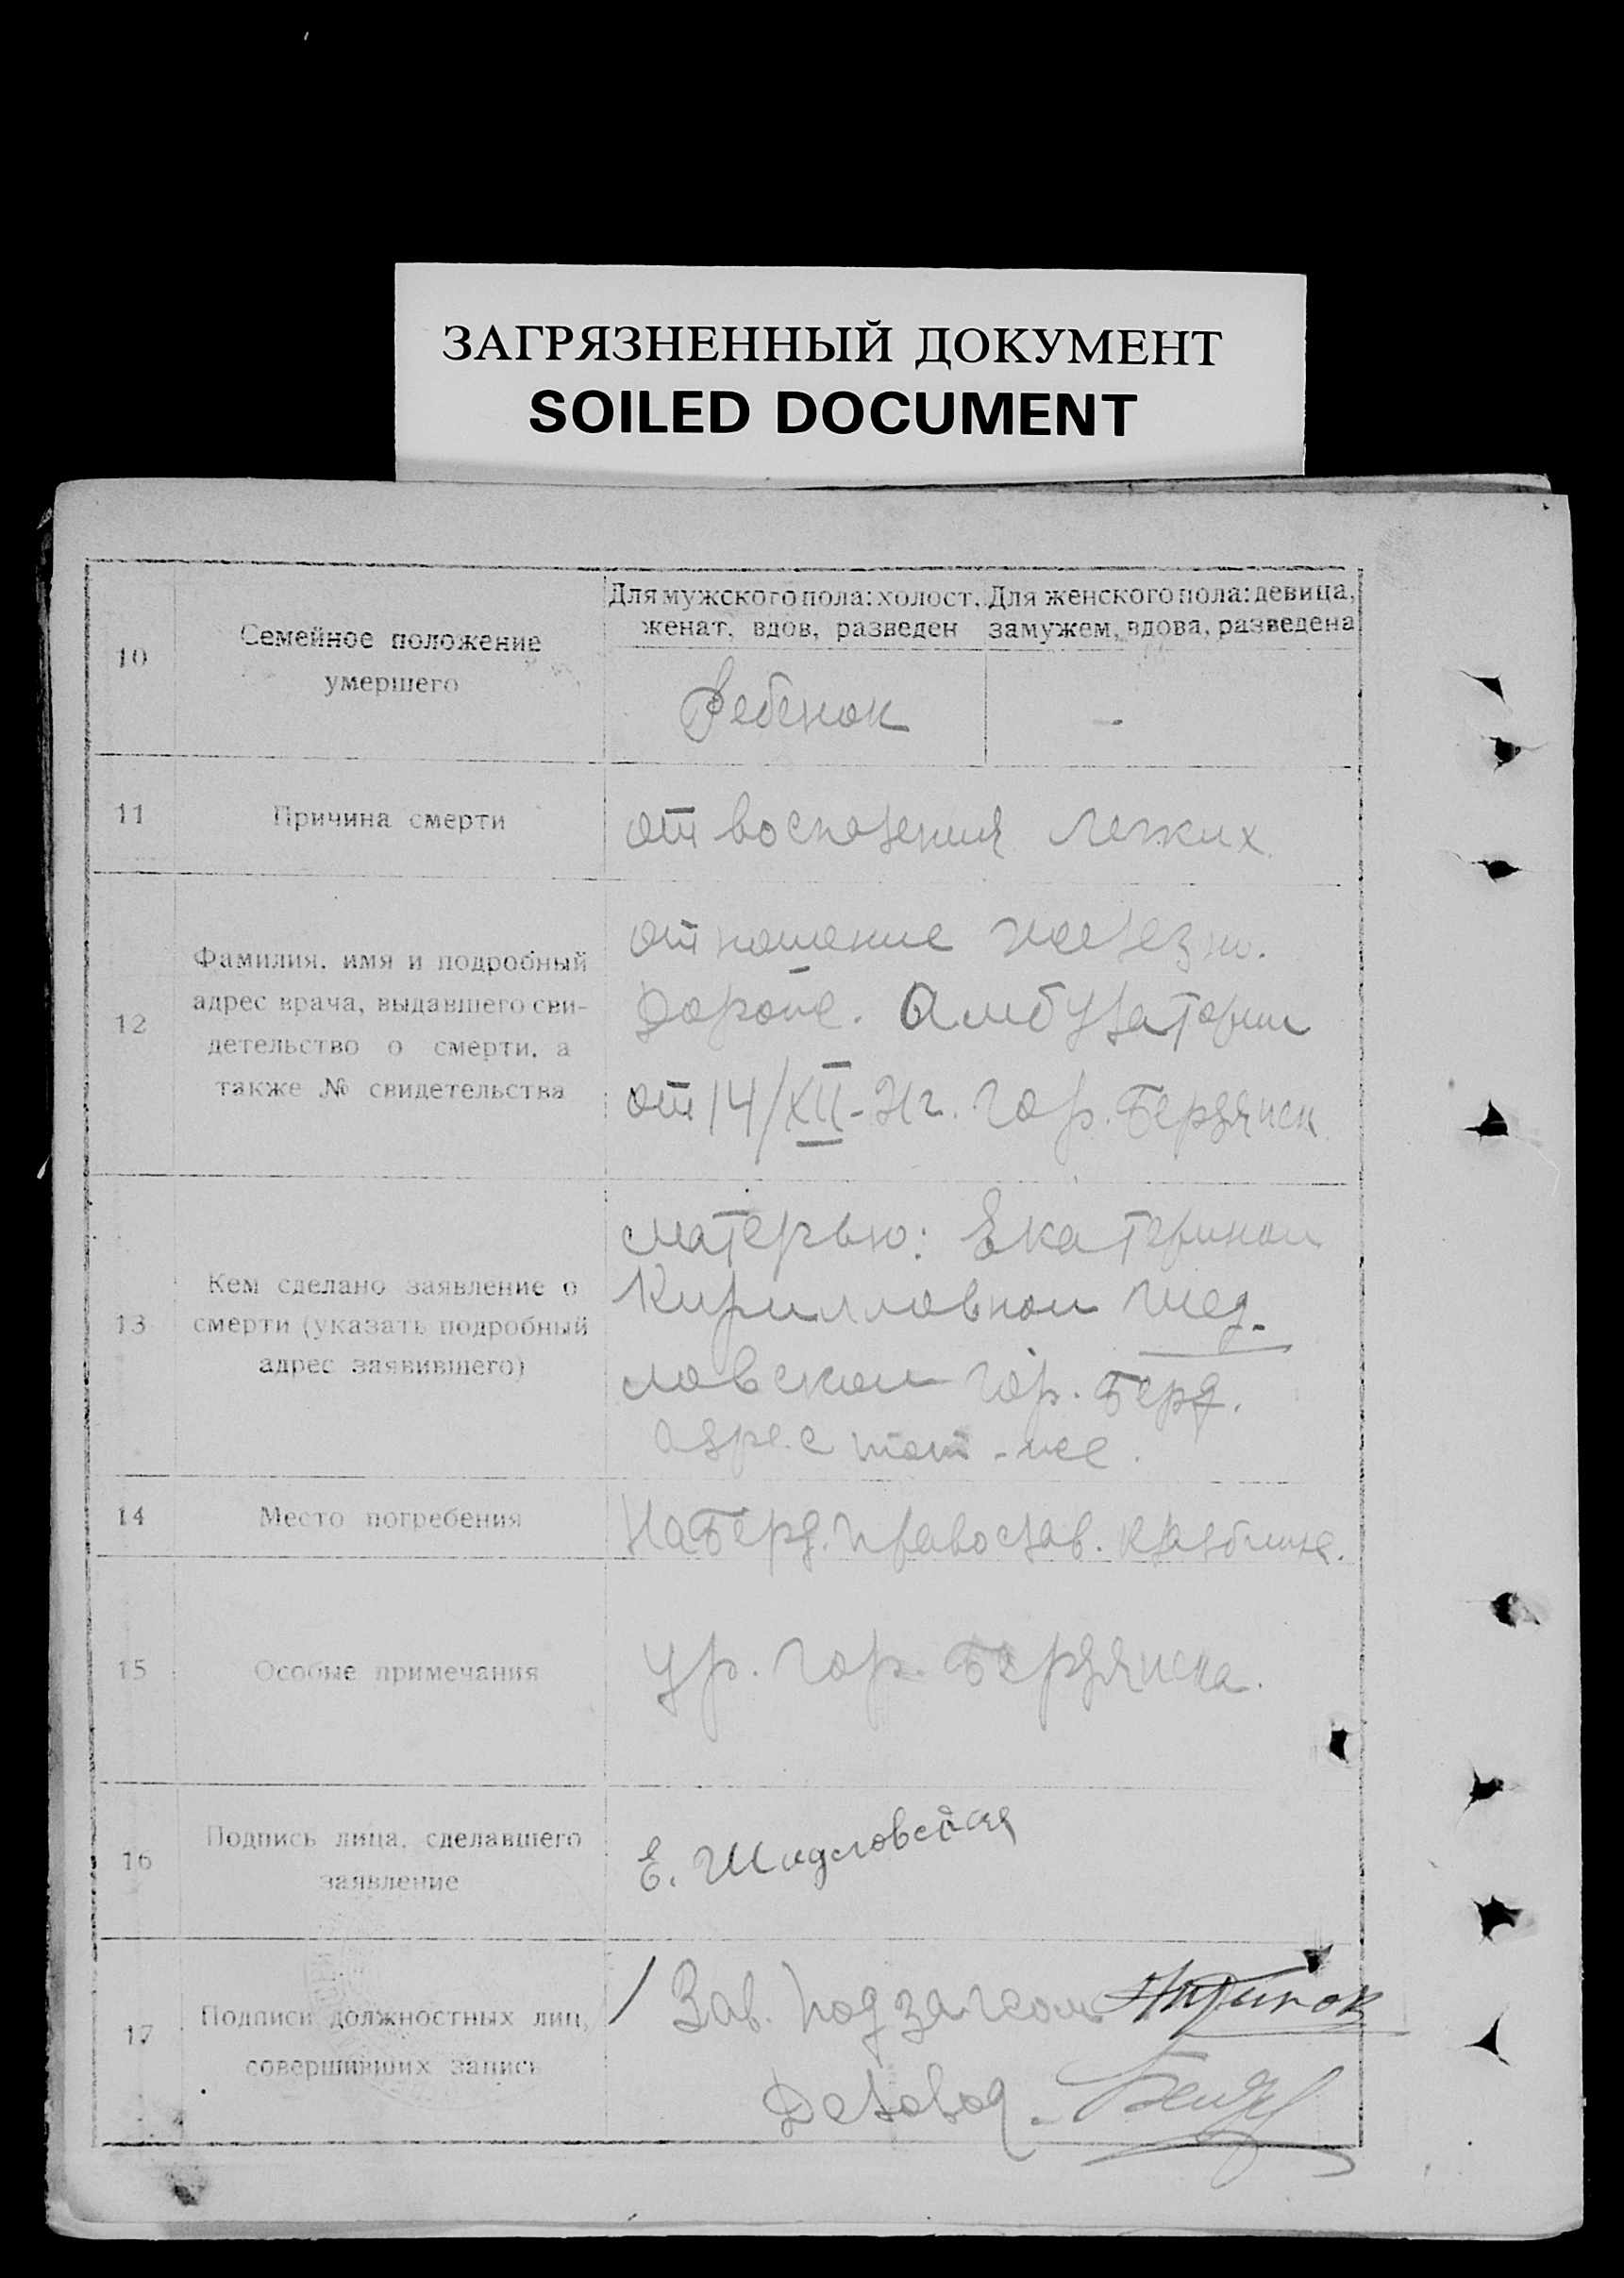 ЗАГРЯЗНЕННЫЙ ДОКУМЕНТ
SOILED DOCUMENT
10
Семейное положение
умершего
Для мужского пола: холост,
женат, вдов, разведен
Для женского пола: девица,
замужем, вдова, разведена
Ребенок
-
11
Причина смерти
от воспаления легких
12
Фамилия, имя и подробный
адрес врача, выдавшего сви-
детельство о смерти, а
также № свидетельства
отношение железно.
Амбулатории
от 14/XII - гор. Бердянск
13
Кем сделано заявление о
смерти (указать подробный
адрес заявившего)
матерью: Екатериной
Кирилловной Шед-
ловской гор. Берд.
адрес тот-же.
14
Место погребения
На Берд. Православ. кладбище.
15
Особые примечания
ур. гор. Бердянска.
16
Подпись лица, сделавшего
заявление
Е. Шидловская
17
Подписи должностных лиц,
совершивших запись
/ Зав. подзагсом
Деловод -